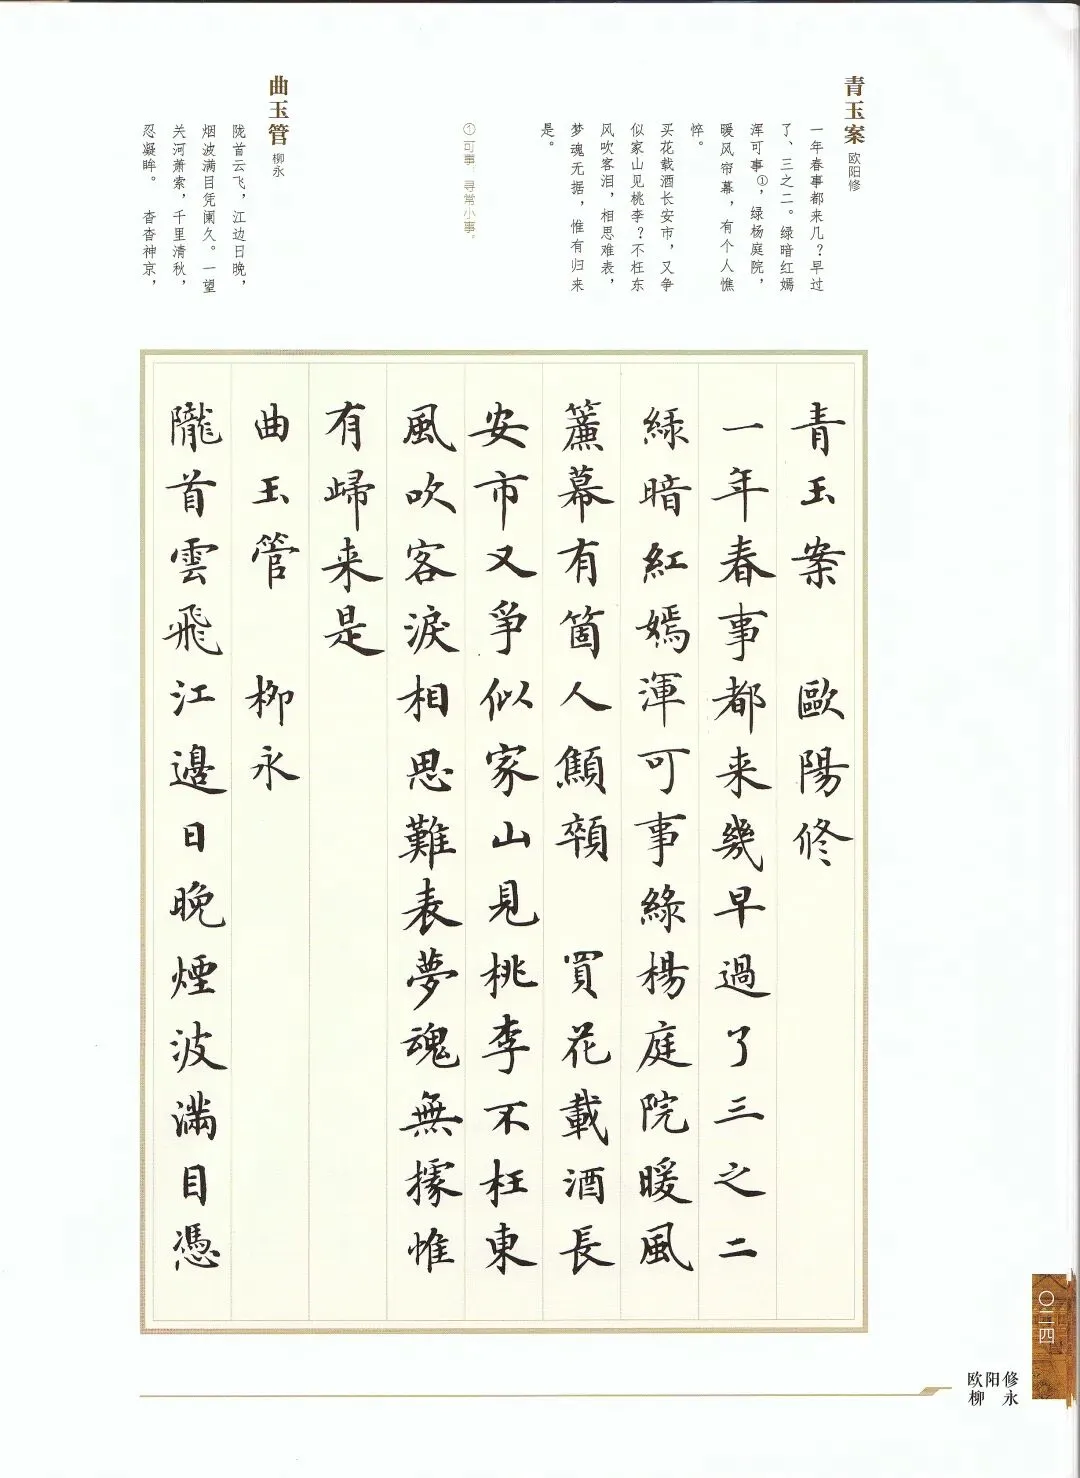 青玉案 欧阳修
一年春事都来几？早过
了、三之二。绿暗红嫣
浑可事①，绿杨庭院，
暖风帘幕，有个人憔
悴。
买花载酒长安市，又争
似家山见桃李？不枉东
风吹客泪，相思难表，
梦魂无据，惟有归来
是。
①可事：寻常小事。
曲玉管 柳永
陇首云飞，江边日晚，
烟波满目凭阑久。一望
关河萧索，千里清秋，
忍凝眸。 杳杳神京，
青玉案 歐陽修
一年春事都来幾早過了三之二
綠暗紅嫣渾可事綠楊庭院暖風
簾幕有箇人顦顇 買花載酒長
安市又爭似家山見桃李不枉東
風吹客淚相思難表夢魂無據惟
有歸来是
曲玉管 柳永
隴首雲飛江邊日晚煙波滿目憑
〇二四
欧阳修
柳永